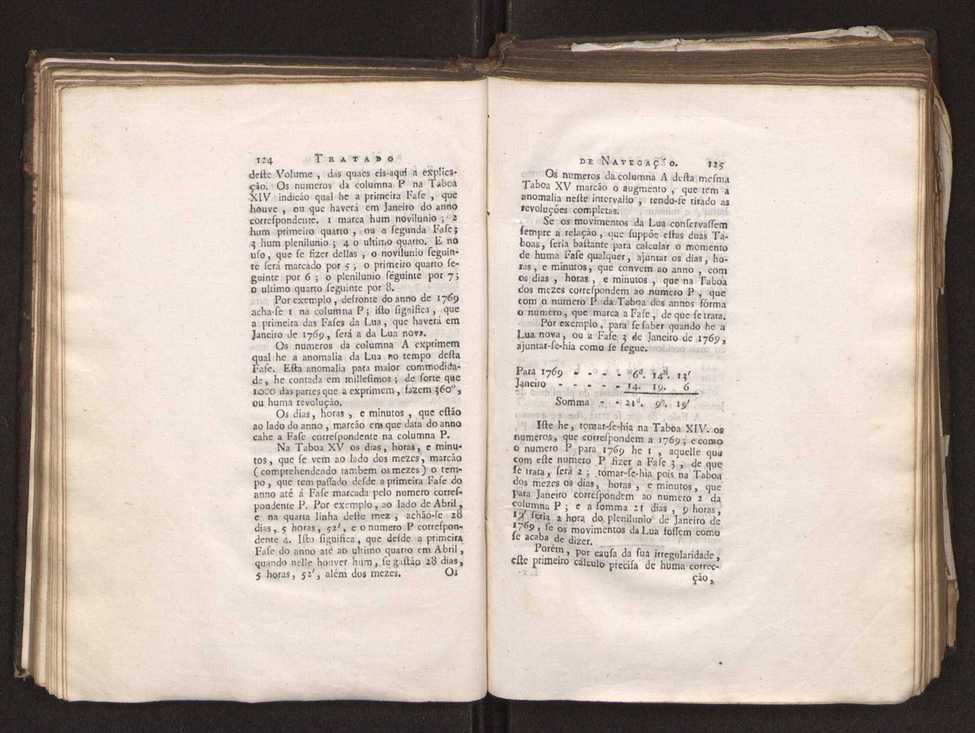 124 TRATADO
deſte Volume , das quaes eis-aqui a explica-
ção. Os numeros da columna P na Taboa
XIV indicão qual he a primeira Faſe , que
houve , ou que haverá em Janeiro do anno
correſpondente. 1 marca hum novilunio ; 2
hum primeiro quarto , ou a ſegunda Faſe ;
3 hum plenilunio ; 4 o ultimo quarto. E no
uſo , que ſe fizer dellas , o novilunio ſeguin-
te ſerá marcado por 5 ; o primeiro quarto ſe-
guinte por 6 ; o plenilunio ſeguinte por 7 ;
o ultimo quarto ſeguinte por 8.
Por exemplo , defronte do anno de 1769
acha-ſe 1 na columna P ; iſto ſignifica , que
a primeira das Faſes da Lua , que haverá em
Janeiro de 1769 , ſerá a da Lua nova.
Os numeros da columna A exprimem
qual he a anomalia da Lua no tempo deſta
Faſe. Eſta anomalia para maior commodida-
de , he contada em milleſimos ; de ſorte que
1000 das partes que a exprimem , fazem 360° ,
ou huma revolução.
Os dias , horas , e minutos , que eſtão
ao lado do anno , marcão em que data do anno
cahe a Faſe correſpondente na columna P.
Na Taboa XV os dias , horas , e minu-
tos , que ſe vem ao lado dos mezes , marcão
( comprehendendo tambem os mezes ) o tem-
po , que tem paſſado deſde a primeira Faſe do
anno até á Faſe marcada pelo numero correſ-
pondente P. Por exemplo , ao lado de Abril ,
e na quarta linha deſte mez , achão-ſe 28
dias , 5 horas , 52′ , e o numero P correſpon-
dente 4. Iſto ſignifica , que deſde a primeira
Faſe do anno até ao ultimo quarto em Abril ,
quando nelle houver hum , ſe gaſtão 28 dias ,
5 horas , 52′ , além dos mezes. Os
DE NAVEGAÇÃO. 125
Os numeros da columna A deſta meſma
Taboa XV marcão o augmento , que tem a
anomalia neſte intervallo , tendo-ſe tirado as
revoluções completas.
Se os movimentos da Lua conſervaſſem
ſempre a relação , que ſuppõe eſtas duas Ta-
boas , ſeria baſtante para calcular o momento
de huma Faſe qualquer , ajuntar os dias , ho-
ras , e minutos , que convem ao anno , com
os dias , horas , e minutos , que na Taboa
dos mezes correſpondem ao numero P , que
com o numero P da Taboa dos annos fórma
o numero , que marca a Faſe , de que ſe trata.
Por exemplo , para ſe ſaber quando he a
Lua nova , ou a Faſe 3 de Janeiro de 1769 ,
ajuntar-ſe-hia como ſe ſegue.
Para 1769 - - - - 6d. 14h. 13′
Janeiro - - - - - 14. 19. 6
Somma - - 21d. 9h. 19′
Iſte he , tomar-ſe-hia na Taboa XIV. os
numeros , que correſpondem a 1769 ; e como
o numero P para 1769 he 1 , aquelle que
com eſte numero P fizer a Faſe 3 , de que
ſe trata , ſerá 2 ; tomar-ſe-hia pois na Taboa
dos mezes os dias , horas , e minutos , que
para Janeiro correſpondem ao numero 2 da
columna P ; e a ſomma 21 dias , 9 horas ,
19′ ſeria a hora do plenilunio de Janeiro de
1769 , ſe os movimentos da Lua foſſem como
ſe acaba de dizer.
Porém , por cauſa da ſua irregularidade ,
eſte primeiro cálculo preciſa de huma correc-
ção ,